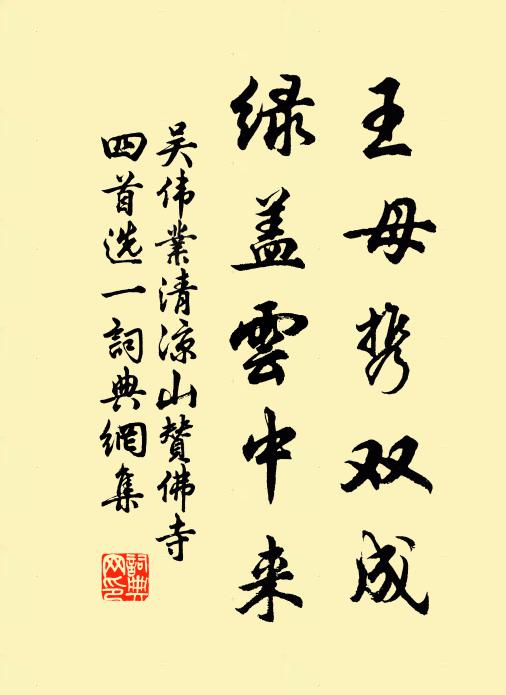 王母携双成
绿盖雲中来
吴伟業清凉山赞佛寺
四首选一詞典網集
詞典网印